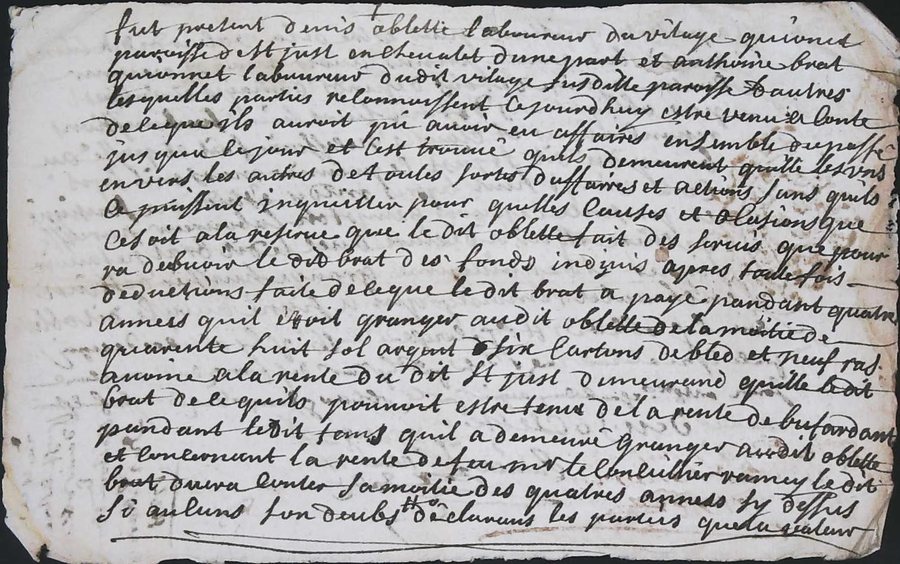 fut present denis oblette laboureur du vilage quionnet
paroisse de st just en chevalet dune part et anthoine brat
quionnet laboureur dudit vilage susditte paroisse dautres
lesquelles parties reconnoissent cejourdhuy estre venu a conte
de ce que ils auroit pu avoir eu affaires ensemble du passé
jusqua ce jour et cest trouvé quils demeurent quitte les uns
envers les autres de toutes sortes daffaires et actions sans quils
ce puissent inquitter pour quelles causes et ocasions que
ce soit a la reserve que le dit oblette fait des servis que pour
ra debvoir le dit brat des fonds indivis apres toute fois
deductions faite de ce que le dit brat a payé pandant quatre
annees quil etoit granger audit oblette de la moitié de
quarente huit sol argent six cartons de bled et neuf ras
avoine a la rente du dit st just dimeurand quitte le dit
brat de ce quils pouvoit estre tenu de la rente de bufardant
pandant le dit tans quil a demeuré granger audit oblette
et concernant la rente de feu mr le conseiller ramey le dit
brat devra conter sa moitie des quatres annees sy dessus
si aucuns son deubs declarans les parties que la valeur